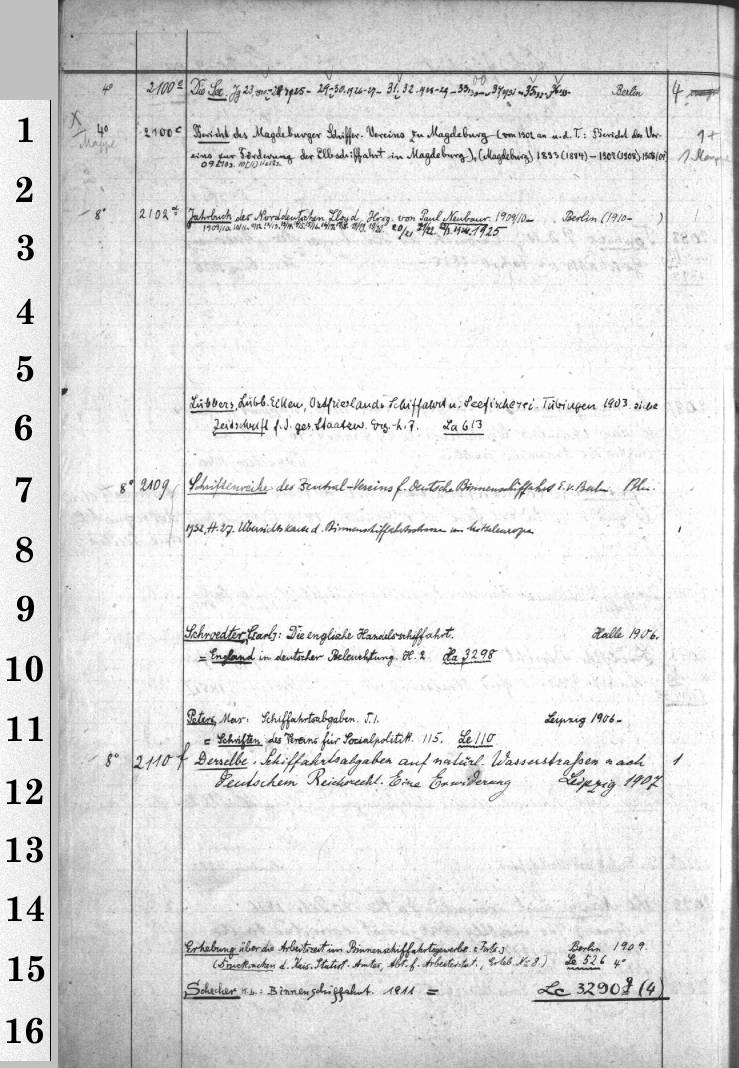 4° 2100 e Die See, Jg 23, 1925- 29-30. 1926-27- 31. 32. 1928-29- 33 - 34 1931- 35 - 36 Berlin 4
1
X 4° 2100 c Bericht des Magdeburger Schiffer-Vereins zu Magdeburg (von 1902 an u. d. T.: Bericht des Ver- 1+
Mappe eins zur Förderung der Elbschiffahrt in Magdeburg), (Magdeburg) 1893 (1894) - 1907 (1908) 1908/09 1 Mappe
2
- 8° 2102 Jahrbuch des Norddeutschen Lloyd, Hrsg. von Paul Neubaur. 1909/10- Berlin (1910- ) 1
1909/10. 10/11. 20/21 21/22 1925
3
4
5
Lübbers, Lübb. Ecken, Ostfrieslands Schiffahrt u. Seefischerei. Tübingen 1903. siehe
6
Zeitschrift f. d. ges. Staatsw. Erg.-h. 7. La 613
7
8° 2109 Schriftenreihe des Zentral-Vereins f. deutsche Binnenschiffahrt E. V. Berlin Bln.
1932, H. 27. Übersichtskarte d. Binnenschiffahrtsstrassen in Mitteleuropa 1
8
9
Schroedter, Carl: Die englische Handelsschiffahrt. Halle 1906.
10
= England in deutscher Beleuchtung. H. 2 Ha 3298
11
Peters, Max: Schiffahrtsabgaben. T. 1. Leipzig 1906-
= Schriften des Vereins für Socialpolitik. 115. Le 110
- 8° 2110 f Derselbe. Schiffahrtsabgaben auf natürl. Wasserstraßen nach 1
12
Deutschem Reichsrecht. Eine Erwiderung Leipzig 1907
13
14
Erhebung über die Arbeitszeit im Binnenschiffahrtsgewerbe Berlin 1909.
15
(Drucksachen d. Kais. Statist. Amtes, Abt. f. Arbeiterstat., Erheb. No 8.) Le 526 4°
Schecher: Binnenschiffahrt. 1911 = Lc 3290 g (4)
16